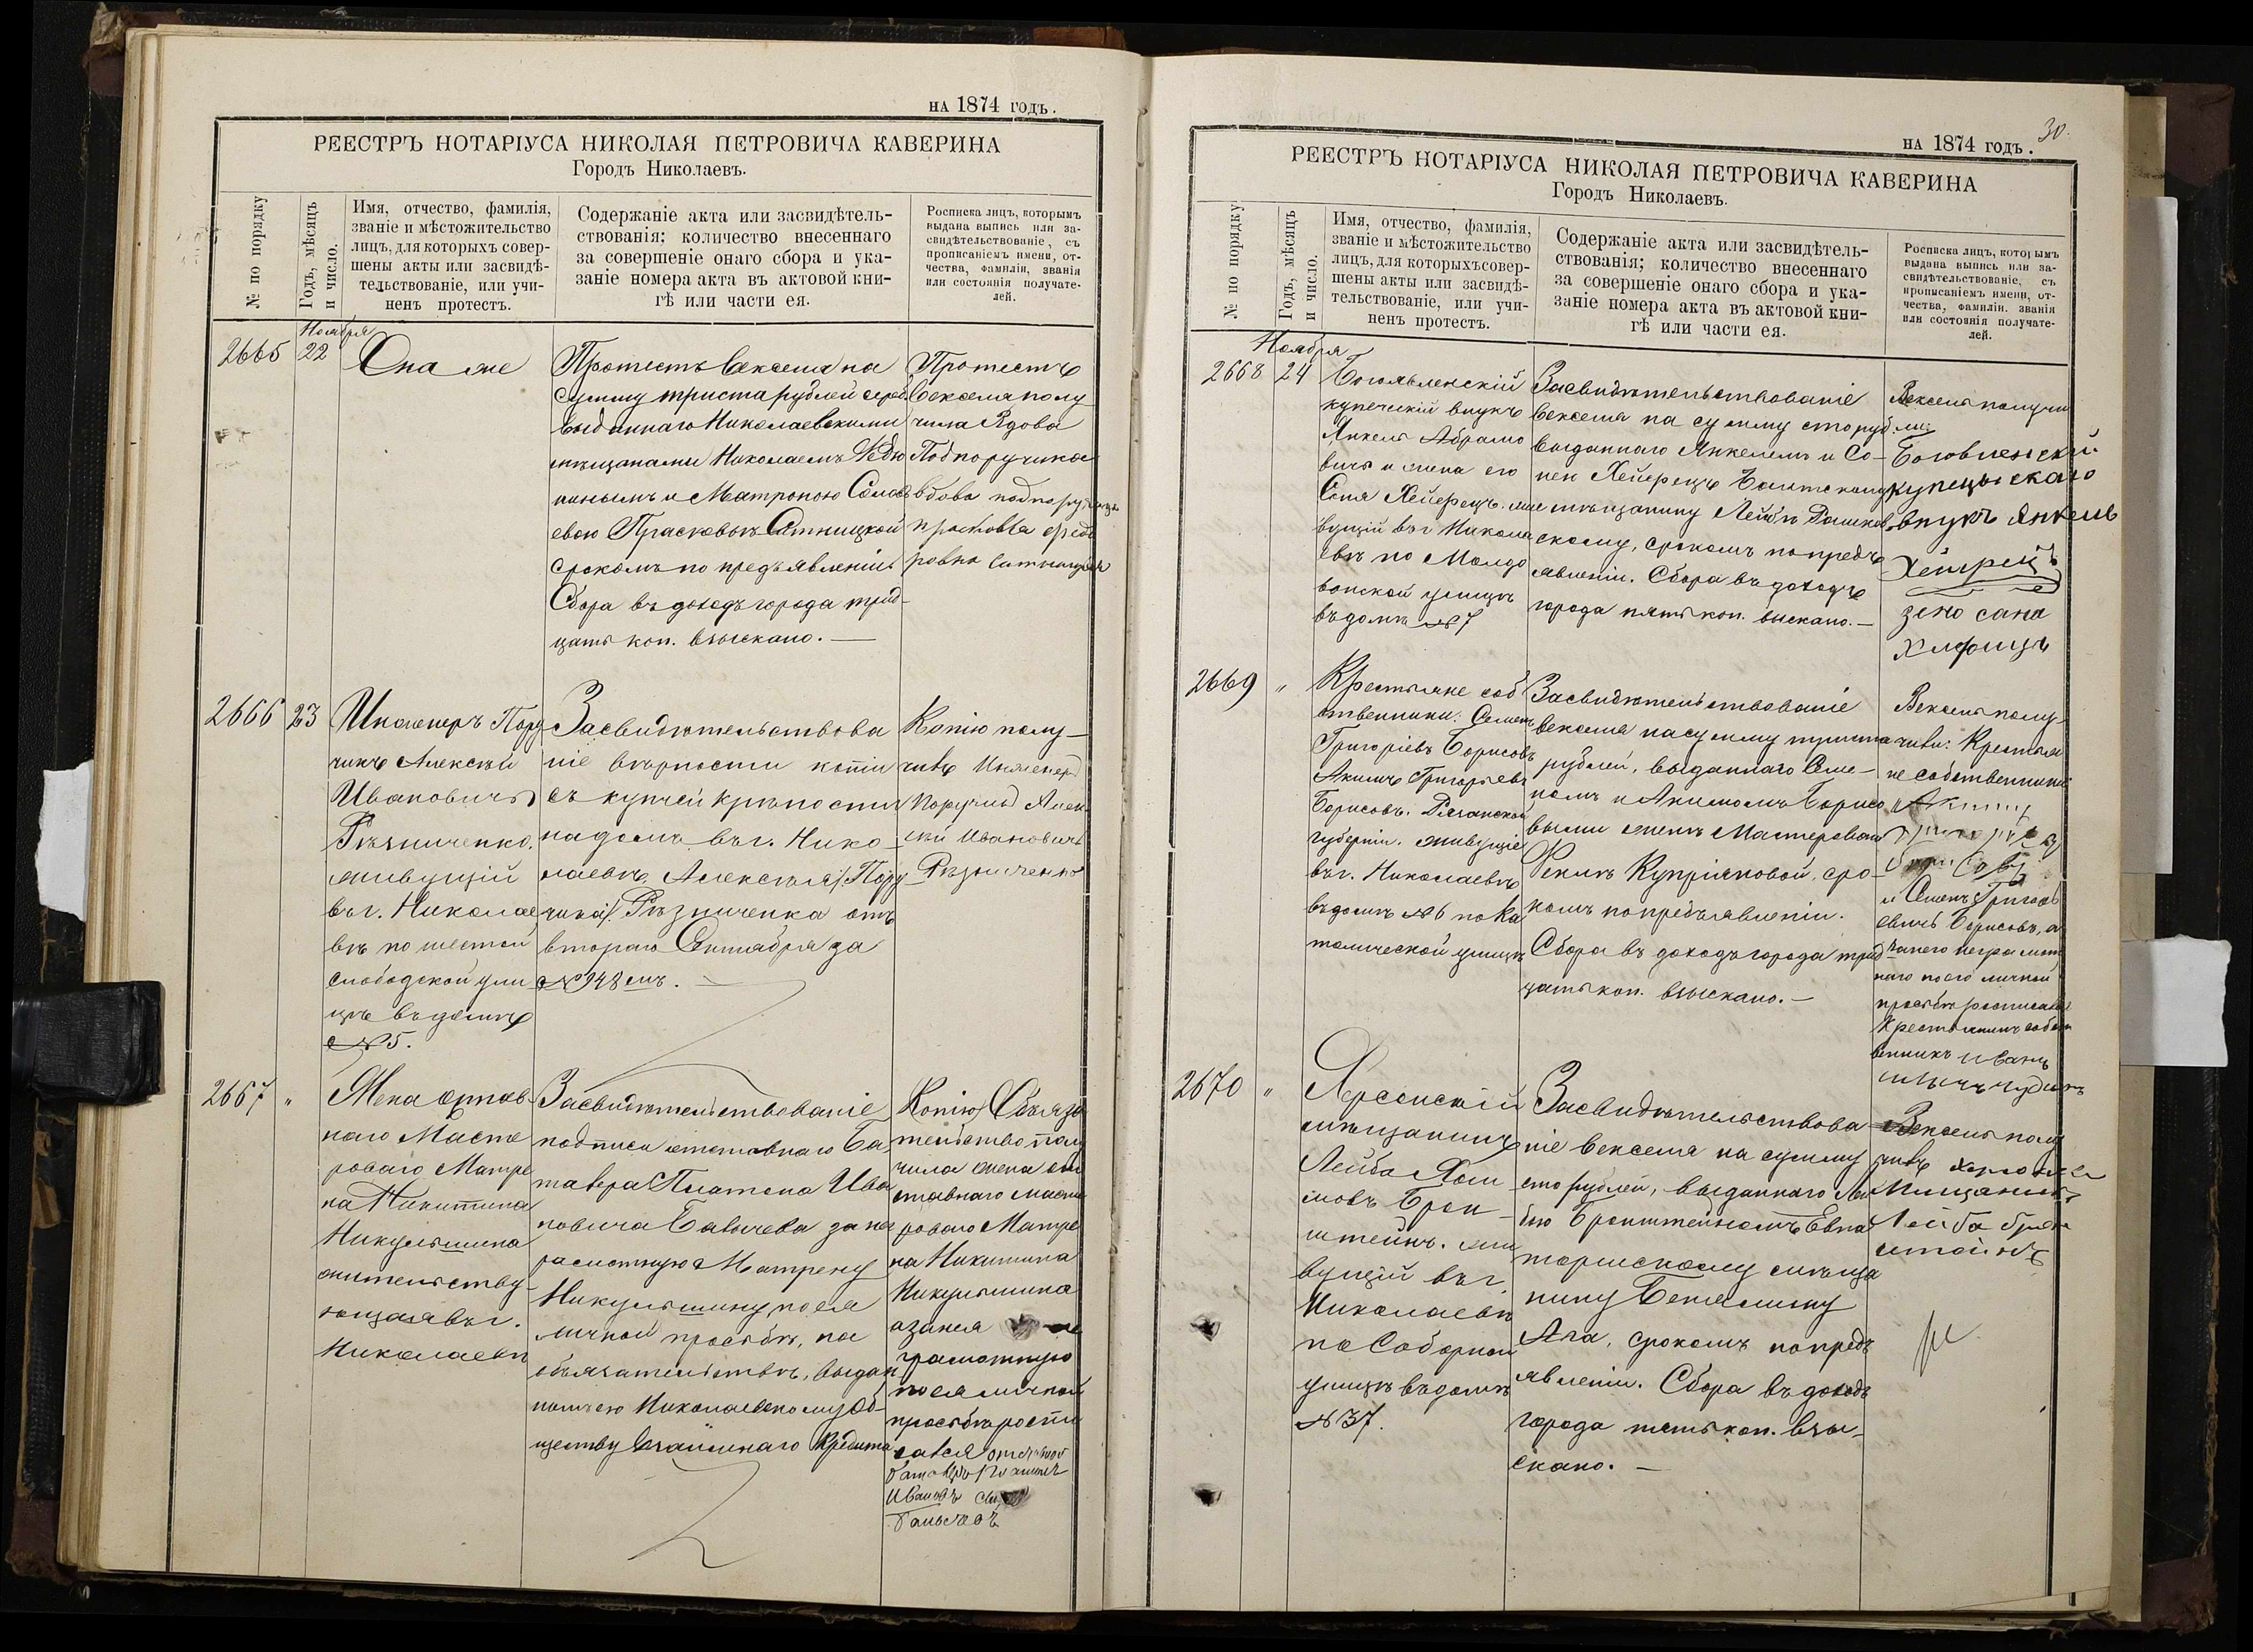 на 1874 годъ.
РЕЕСТРЪ НОТАРІУСА НИКОЛАЯ ПЕТРОВИЧА КАВЕРИНА
Городъ Николаевъ.
№ по порядку
Годъ, мѣсяцъ
и число.
Имя, отчество, фамилія,
званіе и мѣстожительство
лицъ, для которыхъ совер-
шены акты или засвидѣ-
тельствованіе, или учи-
ненъ протестъ.
Содержаніе акта или засвидѣтель-
ствованія; количество внесеннаго
за совершеніе онаго сбора и ука-
заніе номера акта въ актовой кни-
гѣ или части ея.
Росписка лицъ, которымъ
выдана выпись или за-
свидѣтельствованіе, съ
прописаніемъ имени, от-
чества, фамиліи, званія
или состоянія получате-
лей.
Ноября
2665
22
Она же
Протестъ векселя на
сумму триста рублей сереб.
выданнаго Николаевскими
мѣщанами Николаемъ
и Матроною
евою Прасковьи Сатницкой
срокомъ по предъявленіи
Сбора въ доходъ города трид-
цать коп. взыскано. —
Протестъ
векселя полу
чила Вдова
Подпоручика
вдова подпоручика
2666
23
Инженеръ Пору
чикъ Алексѣй
Ивановичъ
Рѣзниченко,
живущій
въ г. Николае
вѣ по шестой
слободской ули
цѣ въ домѣ
№ 5.
Засвидѣтельствова
ніе вѣрности копіи
съ купчей крѣпости
на домъ въ г. Нико-
лаевѣ, Алексѣя Пору
чика Рѣзниченка отъ
втораго Октября за
№ 948 мъ. —
Копію полу-
чилъ Инженеръ
Поручикъ Алек
сѣй Ивановичъ
Рѣзниченко
2667
"
Жена отстав
наго Масте
роваго Матре
на Никитина
Никульшина
жительству-
ющая въ г.
Николаевѣ
Засвидѣтельствованіе
подписи отставнаго Ба
талера Платона Ива
новича Бавычева за не
грамотную Матрену
Никульшину, по ея
личной просьбѣ, на
обязательствѣ, выдан
номъ ею Николаевскому Об-
ществу Взаимнаго Кредита
Копію Обяза
тельство полу
чила жена от
ставнаго масте
роваго Матре
на Никитина
Никульшина
а за нея не
грамотную
по ея личной
просьбѣ роспи
сался отставной
баталеръ Платонъ
Ивановъ
на 1874 годъ.
30.
РЕЕСТРЪ НОТАРІУСА НИКОЛАЯ ПЕТРОВИЧА КАВЕРИНА
Городъ Николаевъ.
№ по порядку
Годъ, мѣсяцъ
и число.
Имя, отчество, фамилія,
званіе и мѣстожительство
лицъ, для которыхъ совер-
шены акты или засвидѣ-
тельствованіе, или учи-
ненъ протестъ.
Содержаніе акта или засвидѣтель-
ствованія; количество внесеннаго
за совершеніе онаго сбора и ука-
заніе номера акта въ актовой кни-
гѣ или части ея.
Росписка лицъ, которымъ
выдана выпись или за-
свидѣтельствованіе, съ
прописаніемъ имени, от-
чества, фамиліи, званія
или состоянія получате-
лей.
Ноября
2668
24
Богоявленскій
купеческій внукъ
Янкель Абрамо
вичъ и жена его
Соня Хейфецъ. жи
вущій въ г. Никола
евѣ по Молдо
ванской улицѣ
въ домѣ № 7
Засвидѣтельствованіе
векселя на сумму сто руб.
выданнаго Янкелемъ и Со-
ней Хейфецъ
мѣщанину Лейбѣ Рашков
скому, срокомъ по предъ
явленіи. Сбора въ доходъ
города пять коп. взыскано. —
Вексель получи
ли:
купецьскаго
внукъ Янкель
2669
"
Крестьяне соб
ственники: Семенъ
Григорьевъ Борисовъ
Акимъ Григорьевъ
Борисовъ. Рязанской
губерніи. живущіе
въ г. Николаевѣ
въ домѣ № 6 по Ка
толической улицѣ
Засвидѣтельствованіе
векселя на сумму триста
рублей, выданнаго Семе-
номъ и Акимомъ Борисо
выми женѣ Мастероваго
Феклѣ Купріяновой, сро-
комъ по предъявленіи.
Сбора въ доходъ города трид
цать коп. взыскано. —
Вексель полу-
чили: Крестья
не собственники
и Семенъ Григорь
евичъ Борисовъ, а
за него неграмот
наго по его личной
просьбѣ росписался
Крестьянинъ собст
венникъ Иванъ
2670
"
Херсонскій
мѣщанинъ
Лейба Хаи
мовъ Брон-
штейнъ. жи
вущій въ г.
Николаевѣ
по Соборной
улицѣ въ домѣ
№ 37.
Засвидѣтельствова
ніе векселя на сумму
сто рублей, выданнаго Лей
бою Бронштейномъ Евпа
торійскому мѣща
нину Беніямину
Ага, срокомъ по предъ
явленіи. Сбора въ доходъ
города пять коп. взы-
скано. —
Вексель полу
чилъ
Мищанинъ
Лейба Брон
штейнъ